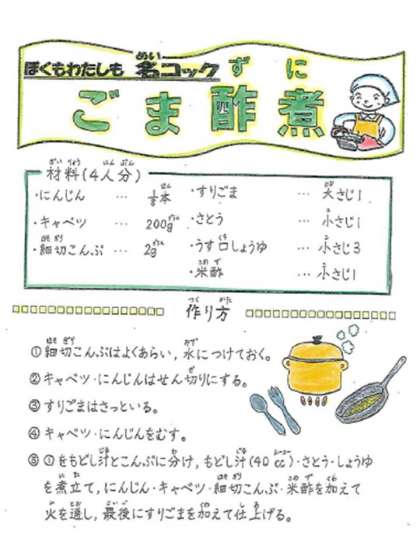 ぼくもわたしも 名コック
ごま酢煮
材料(4人分)
・にんじん … 本
・キャベツ … 200g
・細切こんぶ … 2g
・すりごま … 大さじ1
・さとう … 小さじ1
・うす口しょうゆ … 小さじ3
・米酢 … 小さじ1
作り方
①細切こんぶはよくあらい,水につけておく。
②キャベツ・にんじんはせん切りにする。
③すりごまはさっといる。
④キャベツ・にんじんをむす。
⑤①をもどし汁とこんぶに分け,もどし汁(40cc)・さとう・しょうゆ
を煮立て,にんじん・キャベツ・細切こんぶ・米酢を加えて
火を通し,最後にすりごまを加えて仕上げる。